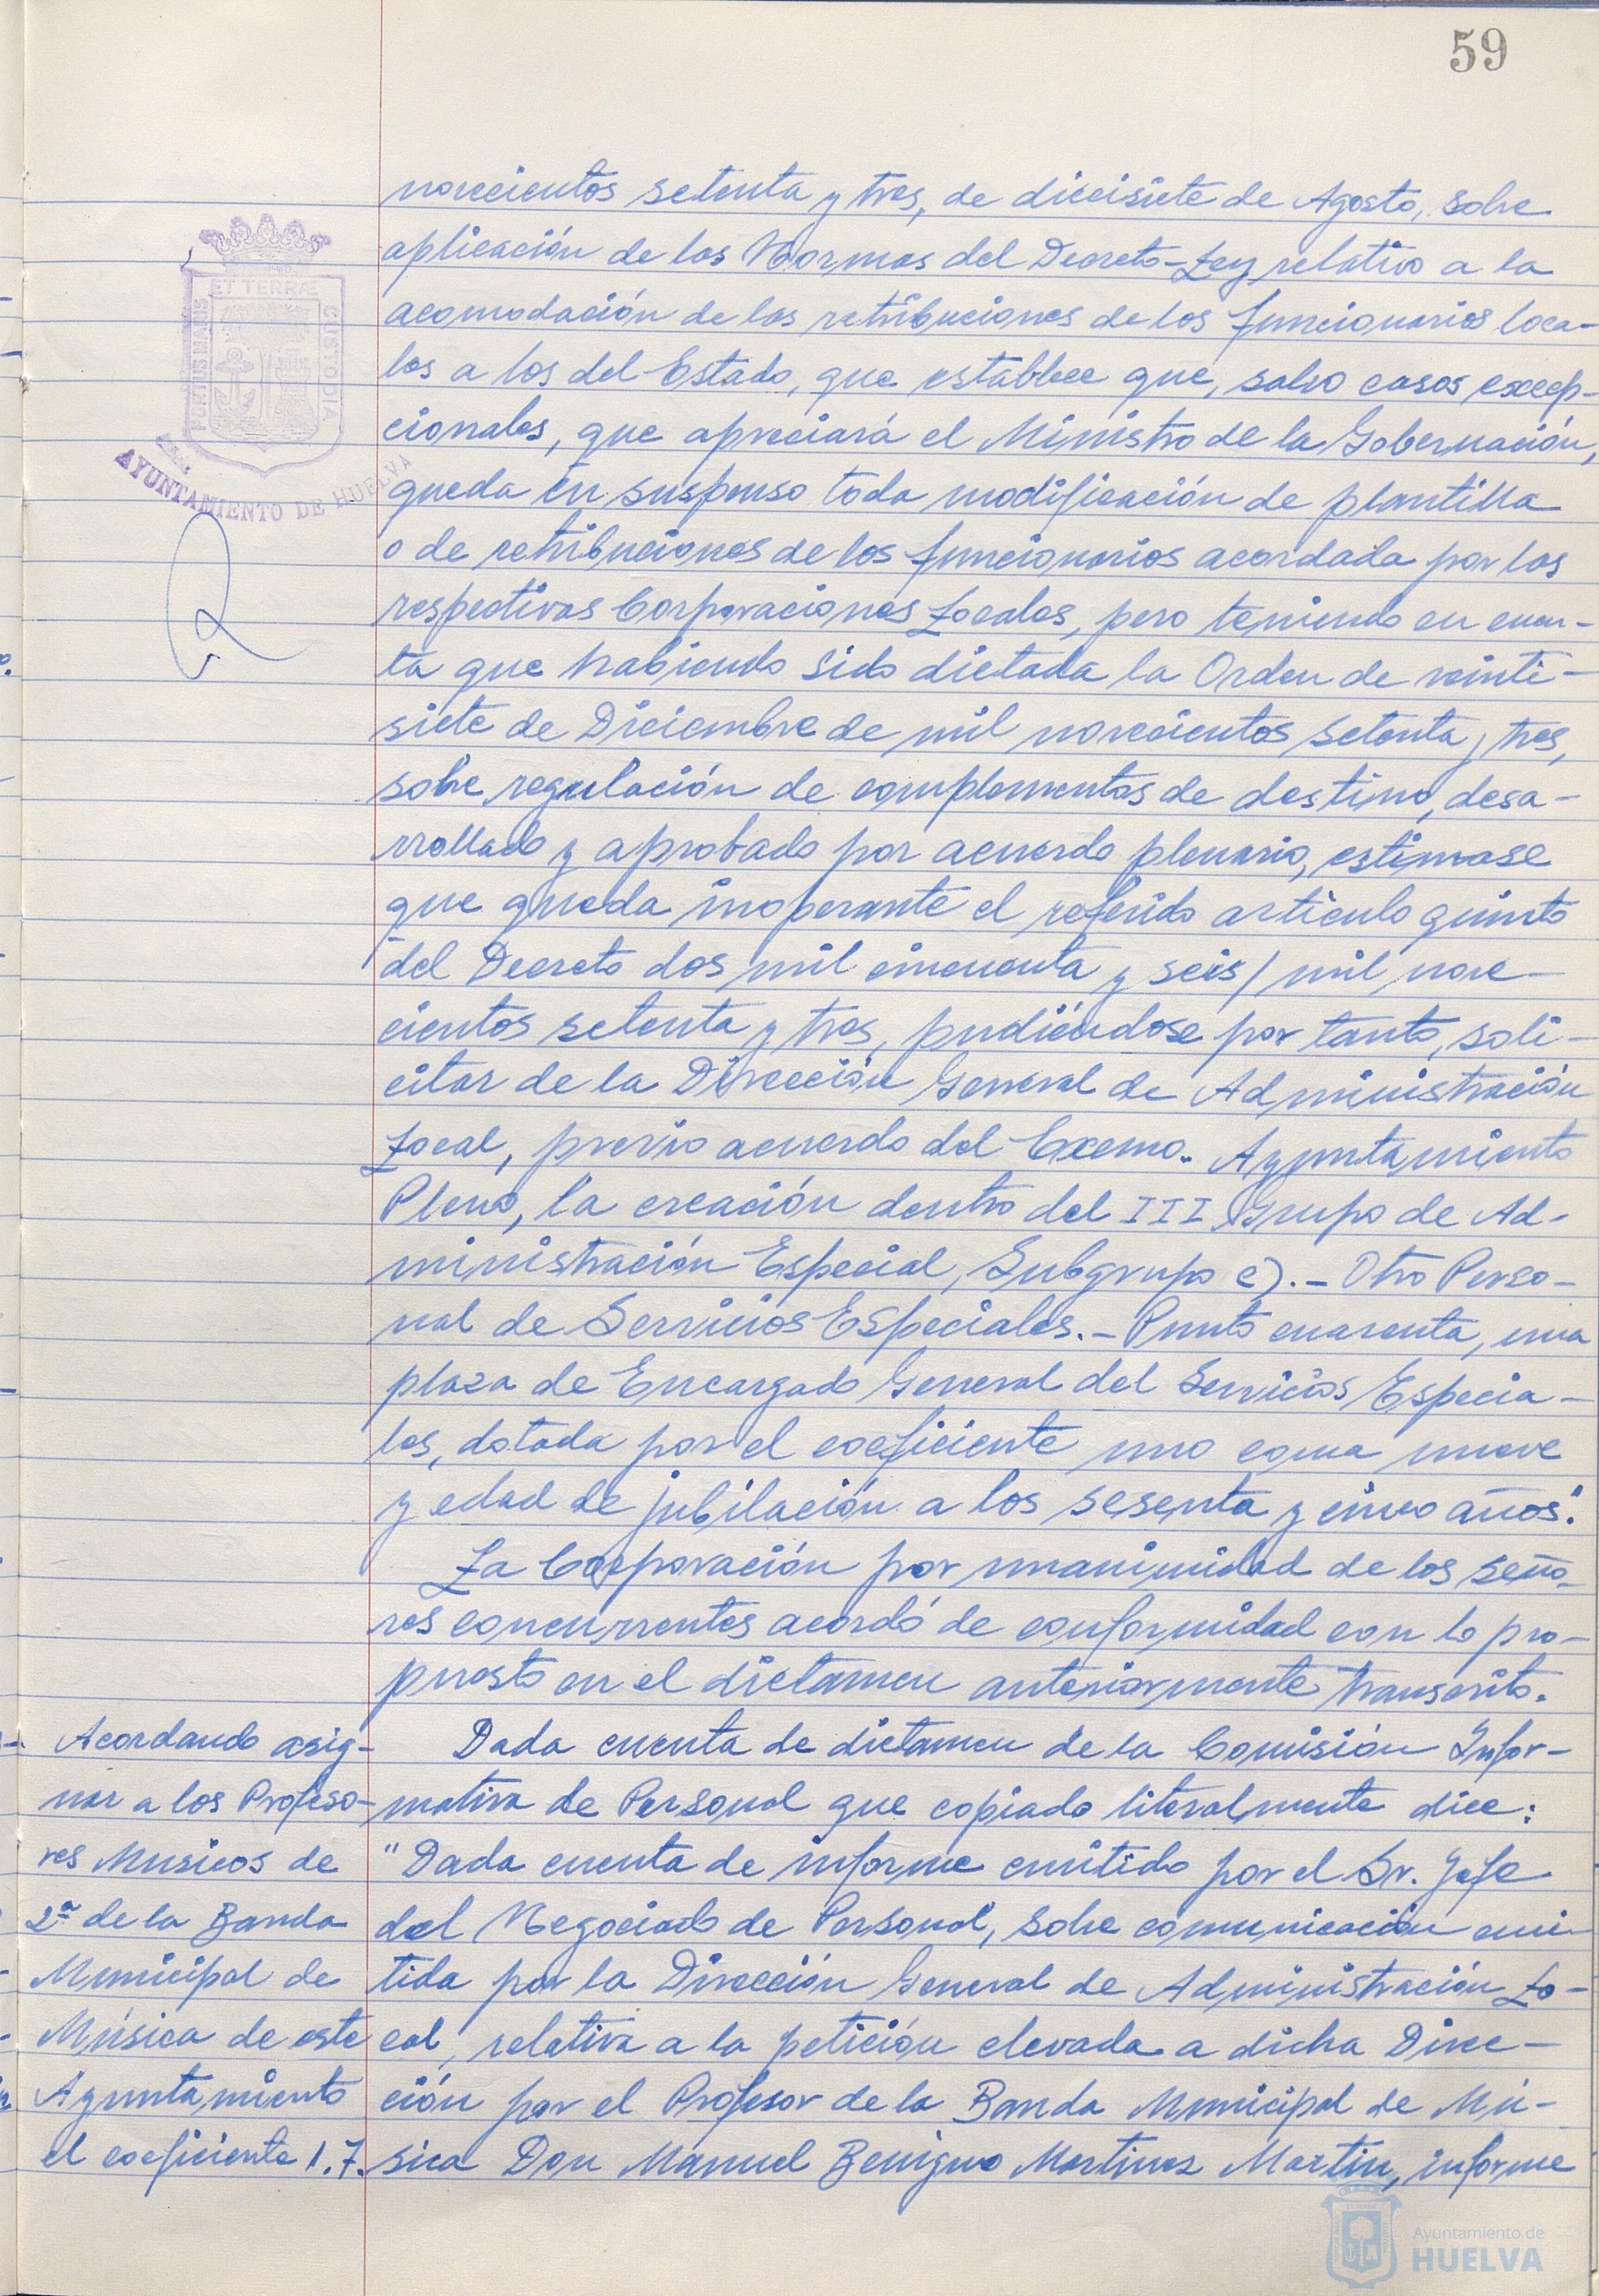 59
novecientos setenta y tres, de diecisiete de Agosto, sobre
aplicación de las Normas del Decreto-Ley relativo a la
acomodación de las retribuciones de los funcionarios loca-
les a los del Estado, que establece que, salvo casos excep-
cionales, que apreciará el Ministro de la Gobernación,
queda en suspenso toda modificación de plantilla
o de retribuciones de los funcionarios acordada por las
respectivas Corporaciones Locales, pero teniendo en cuen-
ta que habiendo sido dictada la Orden de veinti-
siete de Diciembre de mil novecientos setenta y tres,
sobre regulación de complementos de destino, desa-
rrollado y aprobado por acuerdo plenario, estimase
que queda inoperante el referido articulo quinto
del Decreto dos mil cincuenta y seis/ mil nove-
cientos setenta y tres, pudiéndose por tanto, soli-
citar de la Dirección General de Administración
Local, previo acuerdo del Excmo. Ayuntamiento
Pleno, la creación dentro del III Grupo de Ad-
ministración Especial, Subgrupo c).- Otro Perso-
nal de Servicios Especiales.- Punto cuarenta, una
plaza de Encargado General del Servicios Especia-
les, dotada por el coeficiente uno coma nueve
y edad de jubilación a los sesenta y cinco años".
La Corporación por unanimidad de los seño-
res concurrentes acordó de conformidad con lo pro-
puesto en el dictamen anteriormente transcrito.
Acordando asig-
nar a los Profeso-
res Musicos de
2ª de la Banda
Municipal de
Música de este
Ayuntamiento
el coeficiente 1.7.
Dada cuenta de dictamen de la Comisión Infor-
mativa de Personal que copiado literalmente dice:
"Dada cuenta de informe emitido por el Sr. Jefe
del Negociado de Personal, sobre comunicación emi-
tida por la Dirección General de Administración Lo-
cal, relativa a la petición elevada a dicha Direc-
ción por el Profesor de la Banda Municipal de Mú-
sica Don Manuel Benigno Martinez Martin, informe
PORTUS MARIS
ET TERRÆ
CUSTODIA
AYUNTAMIENTO DE HUELVA
Ayuntamiento de
HUELVA